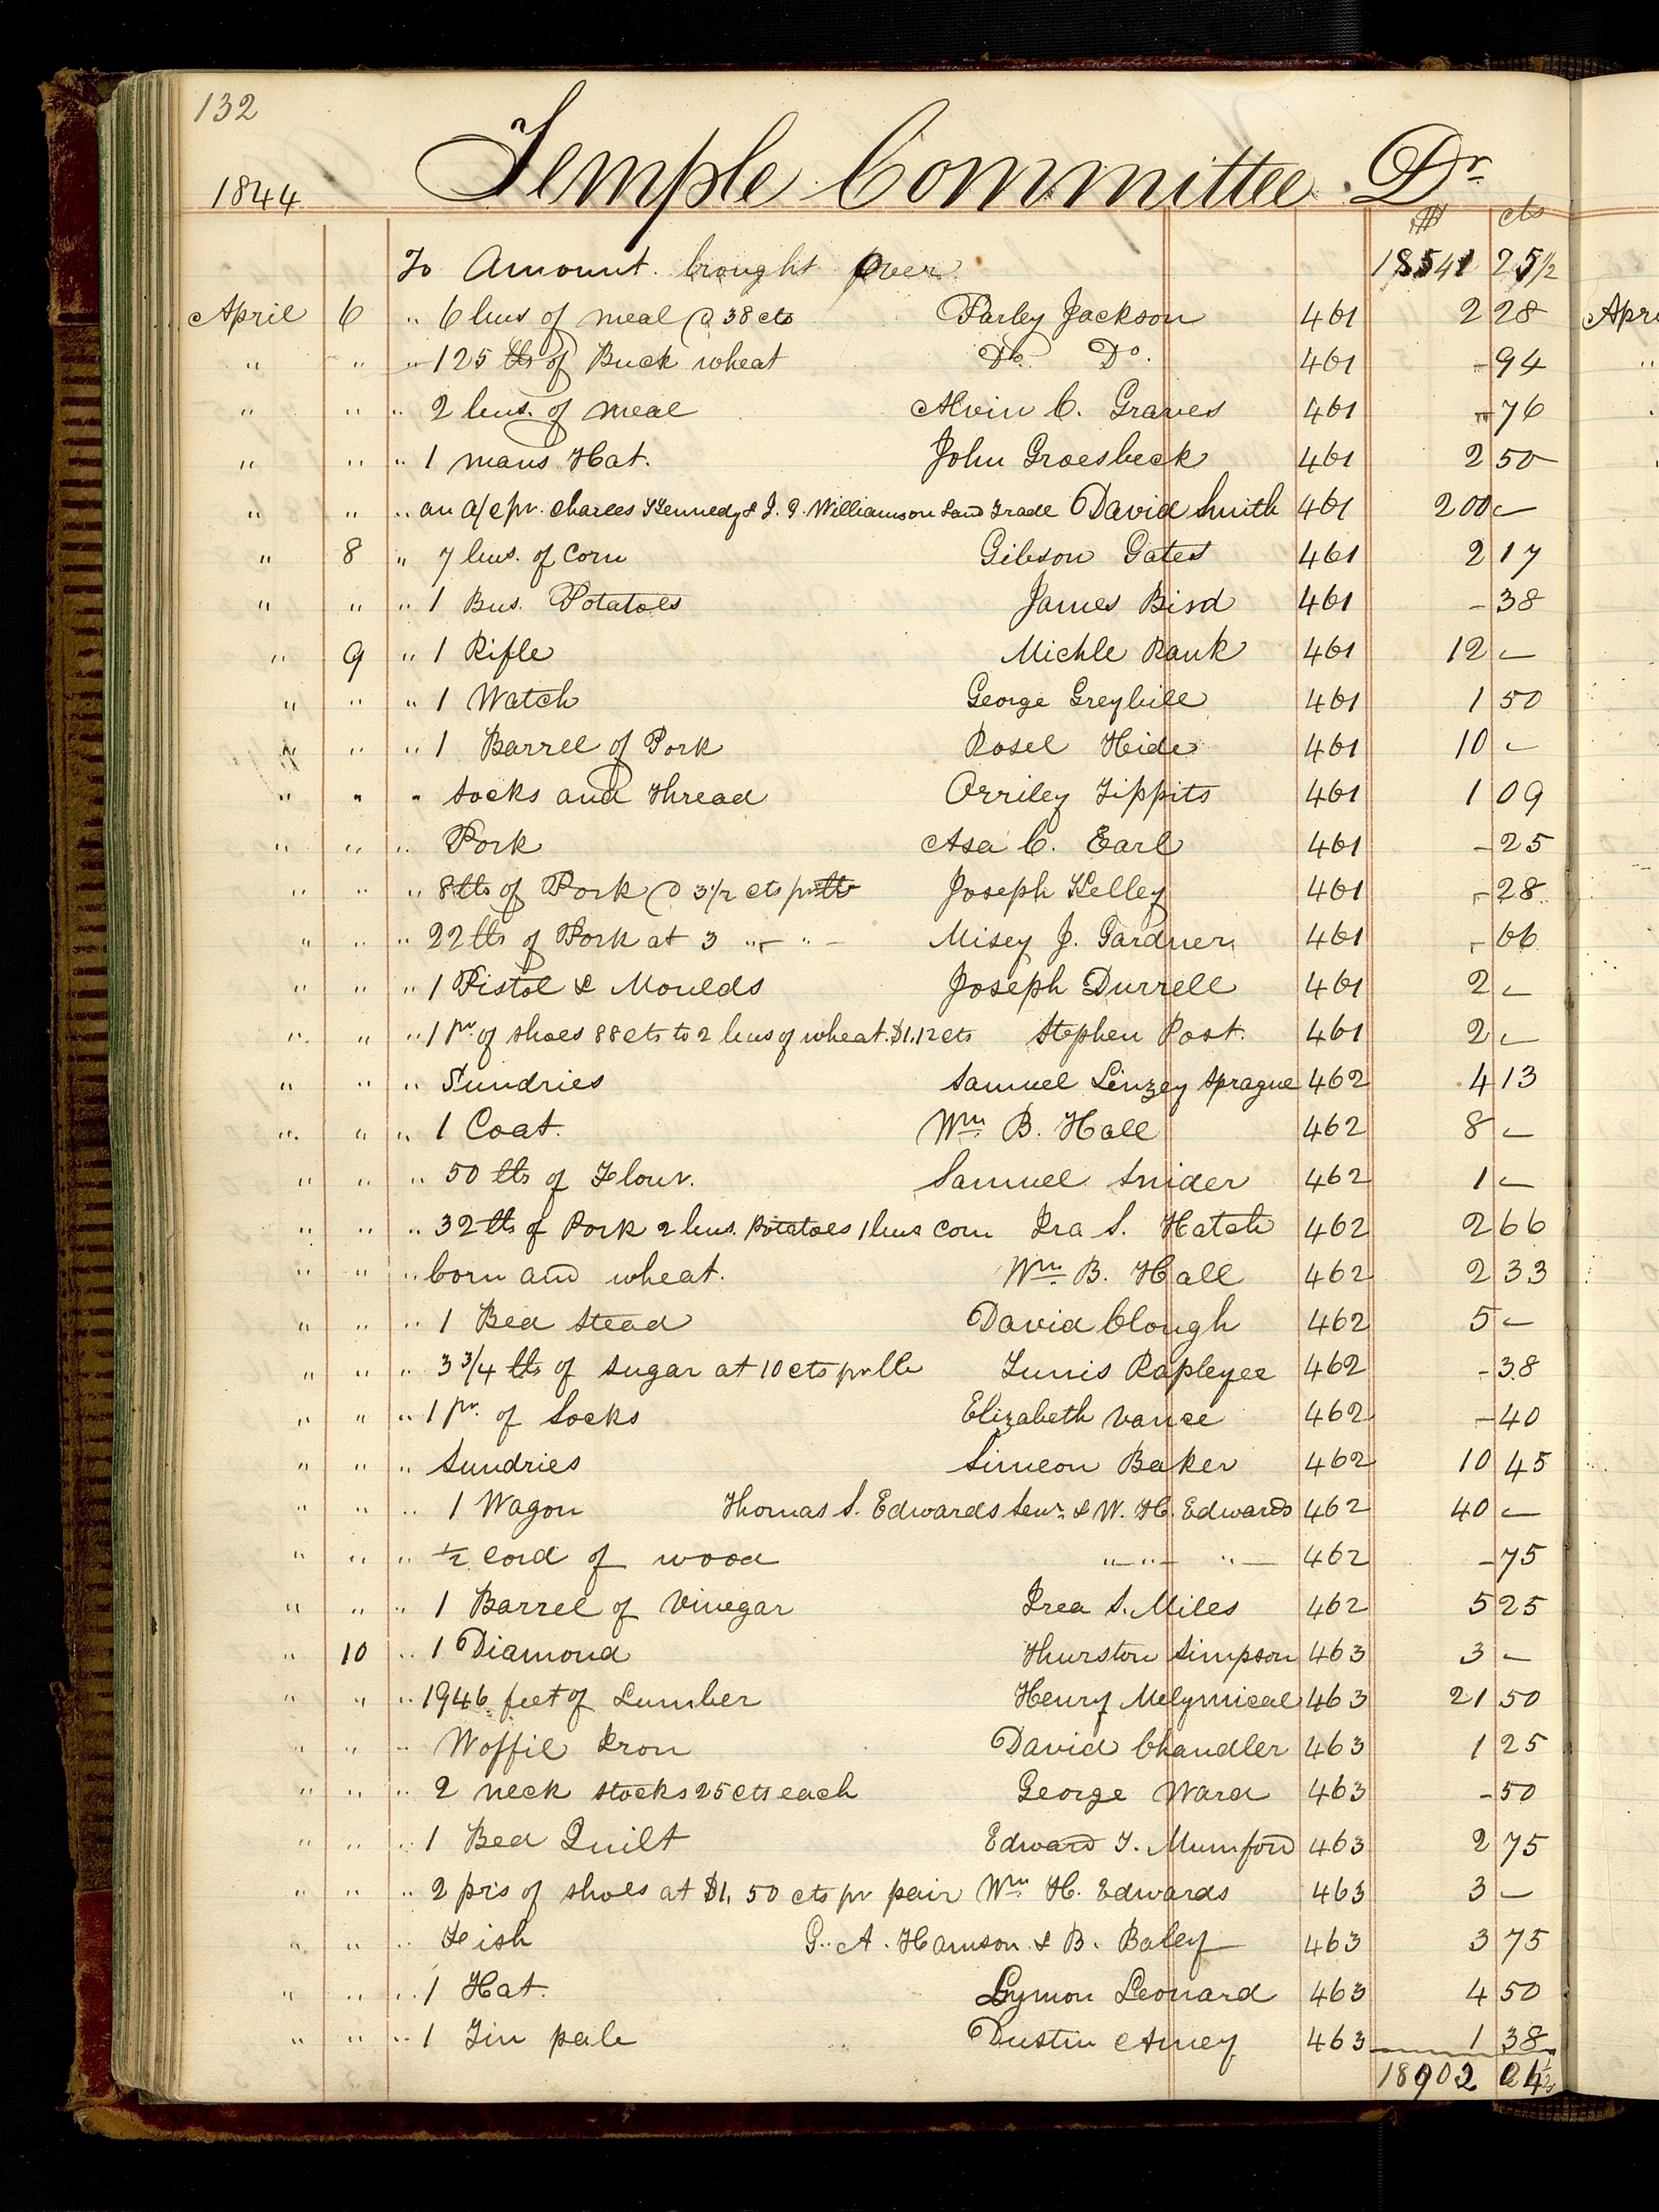 132
Temple Committee Dr
1844
$ cts
To Amount brought over 18541 25 1/2
April 6 " 6 bus of meal @ 38 cts Parley Jackson 461 2 28
" " " 125 lbs of Buck wheat Do Do. 461 - 94
" " " 2 bus. of meal Alvin C. Graves 461 - 76
" " " 1 mans Hat. John Groesbeck 461 2 50
" " " an a/c pr. Charles Kennedy & J. P. Williamson Land Trade David Smith 461 200 -
" 8 " 7 bus. of Corn Gibson Gates 461 2 17
" " " 1 Bus. Potatoes James Bird 461 - 38
" 9 " 1 Rifle Michle Rauk 461 12 -
" " " 1 Watch George Greybill 461 1 50
" " " 1 Barrel of Pork Rosel Hide 461 10 -
" " " Socks and Thread Orriley Tippits 461 1 09
" " " Pork Asa C. Earl 461 - 25
" " " 8 lbs of Pork @ 3 1/2 cts pr lb Joseph Kelley 461 - 28
" " " 22 lbs of Pork at 3 " - " - Misey J. Gardner 461 - 66
" " " 1 Pistol & Moulds Joseph Durrell 461 2 -
" " " 1 pr. of shoes 88 cts to 2 bus of wheat. $1.12 cts Stephen Post. 461 2 -
" " " Sundries Samuel Linzey Sprague 462 4 13
" " " 1 Coat. Wm B. Hall 462 8 -
" " " 50 lbs of Flour. Samuel Snider 462 1 -
" " " 32 lbs of Pork 2 bus. Potatoes 1 bus Corn Ira S. Hatch 462 2 66
" " " Corn and wheat. Wm B. Hall 462 2 33
" " " 1 Bed Stead David Clough 462 5 -
" " " 3 3/4 lbs of Sugar at 10 cts pr lb Tunis Rapleyee 462 - 38
" " " 1 pr. of Socks Elizabeth Vance 462 - 40
" " " Sundries Simeon Baker 462 10 45
" " " 1 Wagon Thomas S. Edwards Senr. & W. H. Edwards 462 40 -
" " " 1/2 Cord of wood " - " - " - 462 - 75
" " " 1 Barrel of Vinegar Irea S. Miles 462 5 25
" 10 " 1 Diamond Thurston Simpson 463 3 -
" " " 1946 feet of Lumber Henry 463 21 50
" " " Woffil Iron David Chandler 463 1 25
" " " 2 neck stocks 25 cts each George Ward 463 - 50
" " " 1 Bed Quilt Edward T. Mumford 463 2 75
" " " 2 prs of shoes at $1,50 cts pr pair Wm H. Edwards 463 3 -
" " " Fish G. A. & B. Baley 463 3 75
" " " 1 Hat. Lymon Leonard 463 4 50
" " " 1 Tin pale Dustin Amey 463 1 38
18902 04 1/2
Apri